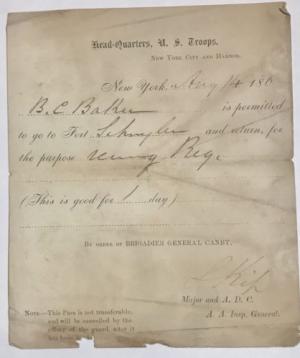 Head-Quarters, U. S. Troops,
New York City and Harbor.
New York, Aug 14 186
B. C. Baker is permitted
to go to Fort Schuyler and return, for
the purpose Reg.
(This is good for 1 day)
By order of BRIGADIER GENERAL CANBY,
Major and A. D. C.
A. A. Insp. General.
Note—This Pass is not transferable,
and will be cancelled by the
officer of the guard, after it
has been